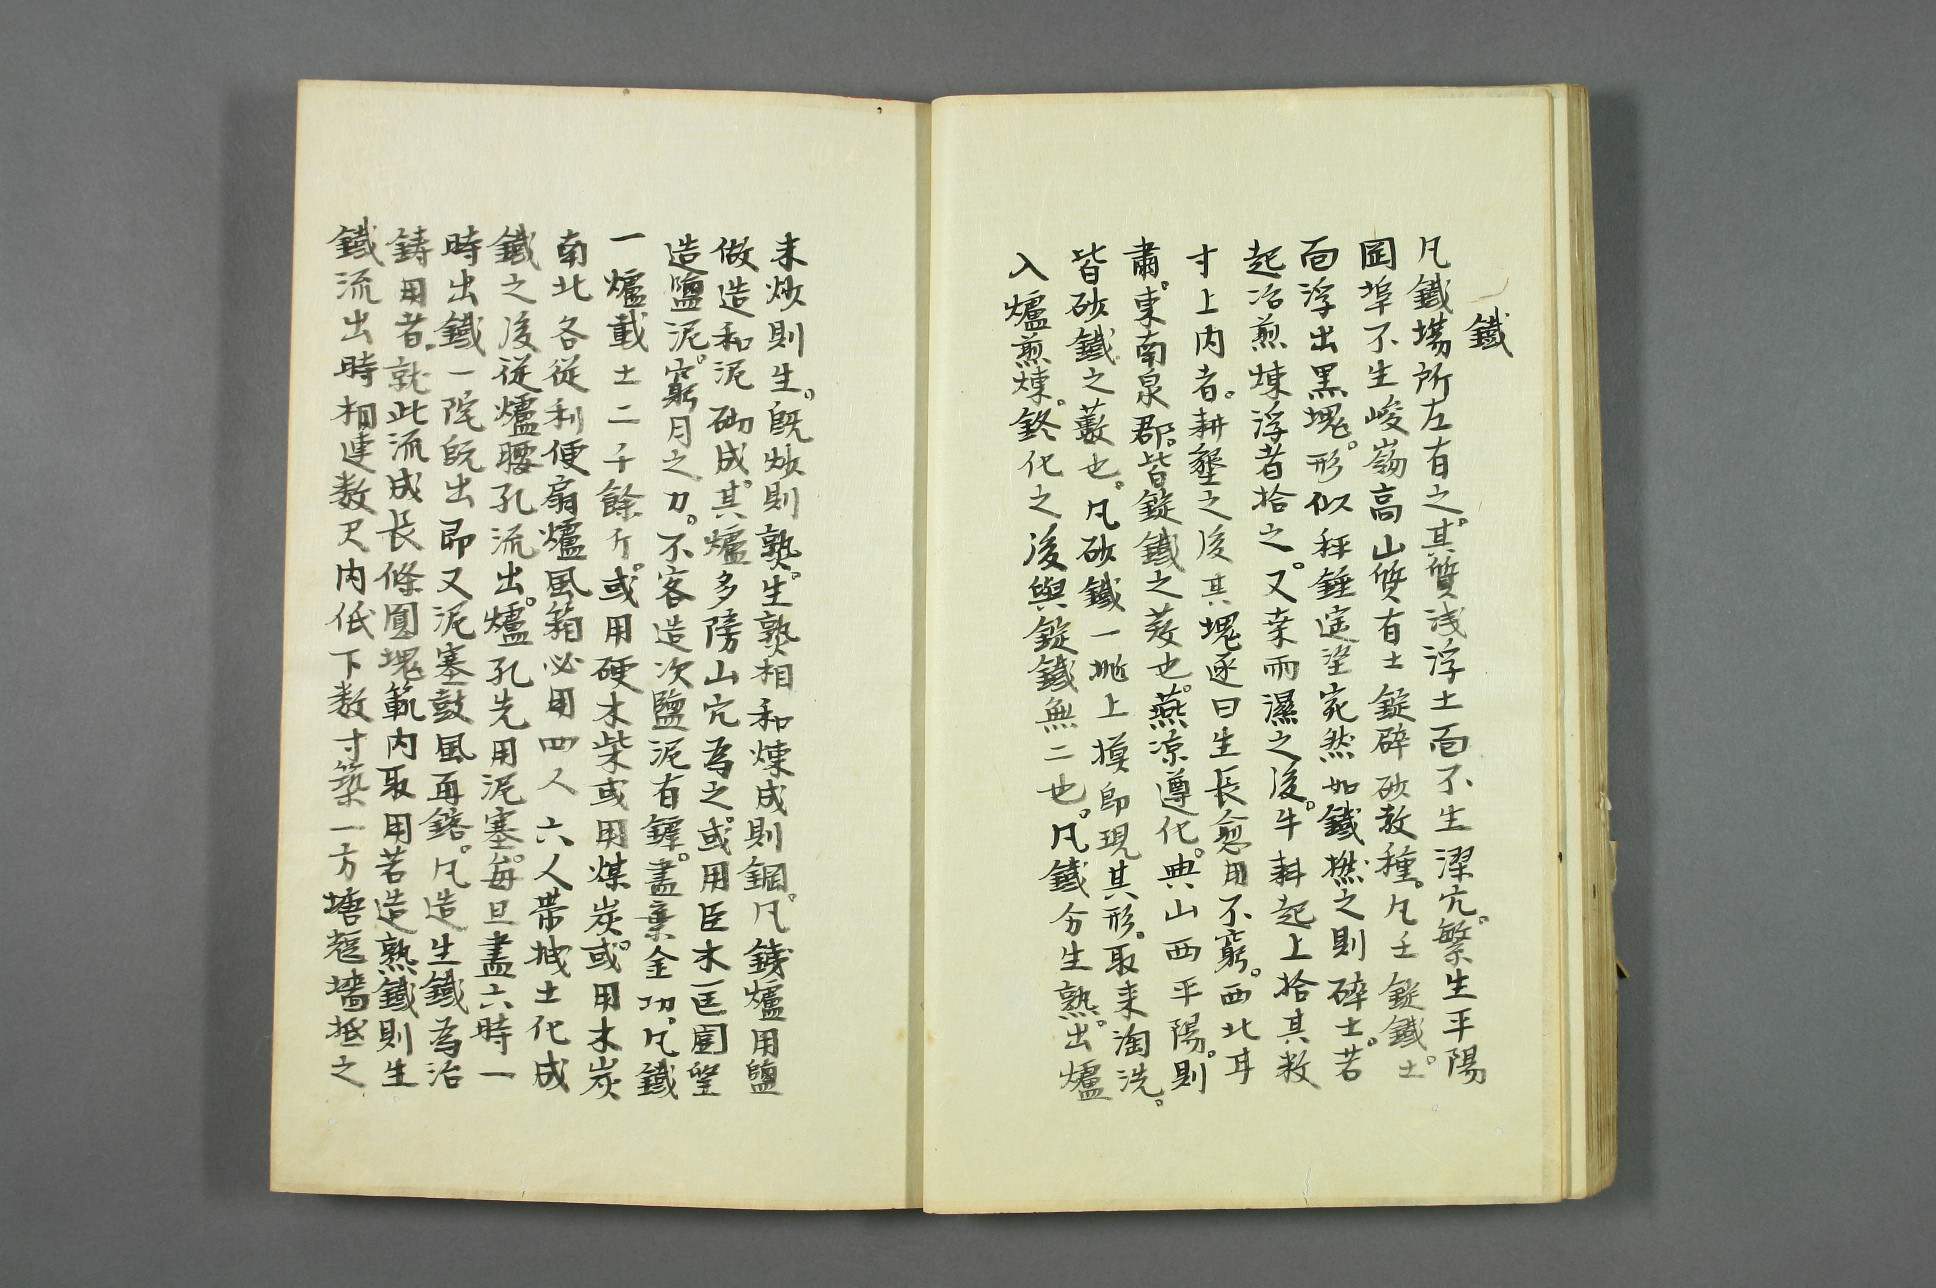 鐵
凡鐵塲所左有之。其質浅浮土面不生深穴。繁生平陽
岡埠不生峻嶺高山質有土錠碎砂数種。凡土錠鐵。土
面浮出黑塊。形似秤錘遥望宛然如鐵撚之則碎土。若
起冶煎煉浮者拾之。又乗雨濕之後。牛耕起上拾其数
寸上内者。耕墾之後其塊逐日生長愈用不窮。西北耳
肅。東南泉郡。皆錠鐵之薮也。燕凉遵化。典山西平陽。則
皆砂鐵之藪也。凡砂鐵一抛上摸即現其形。取来淘洗。
入爐煎煉。鎔化之後與錠鐵無二也。凡鐵分生熟。出爐
未炒則生。既炒則熟。生熟相和煉成則鋼。凡銕爐用鹽
做造和泥砌成。其爐多傍山穴為之。或用臣木匡圍塑
造鹽泥。窮月之力。不客造次鹽泥有罅。盡棄金功。凡鐵
一爐載土二千餘斤。或用硬木柴或用煤炭。或用木炭
南北各從利便扇爐風箱必用四人六人帯拽土化成
鐵之後從爐腰孔流出。爐孔先用泥塞。毎旦晝六時一
時出鐵一陀既出即又泥塞鼓風再鎔。凡造生鐵為冶
鋳用者。就此流成長條圓塊範内取用若造熟鐵則生
鐵流出時相連数尺内低下数寸築一方塘短墻抵之